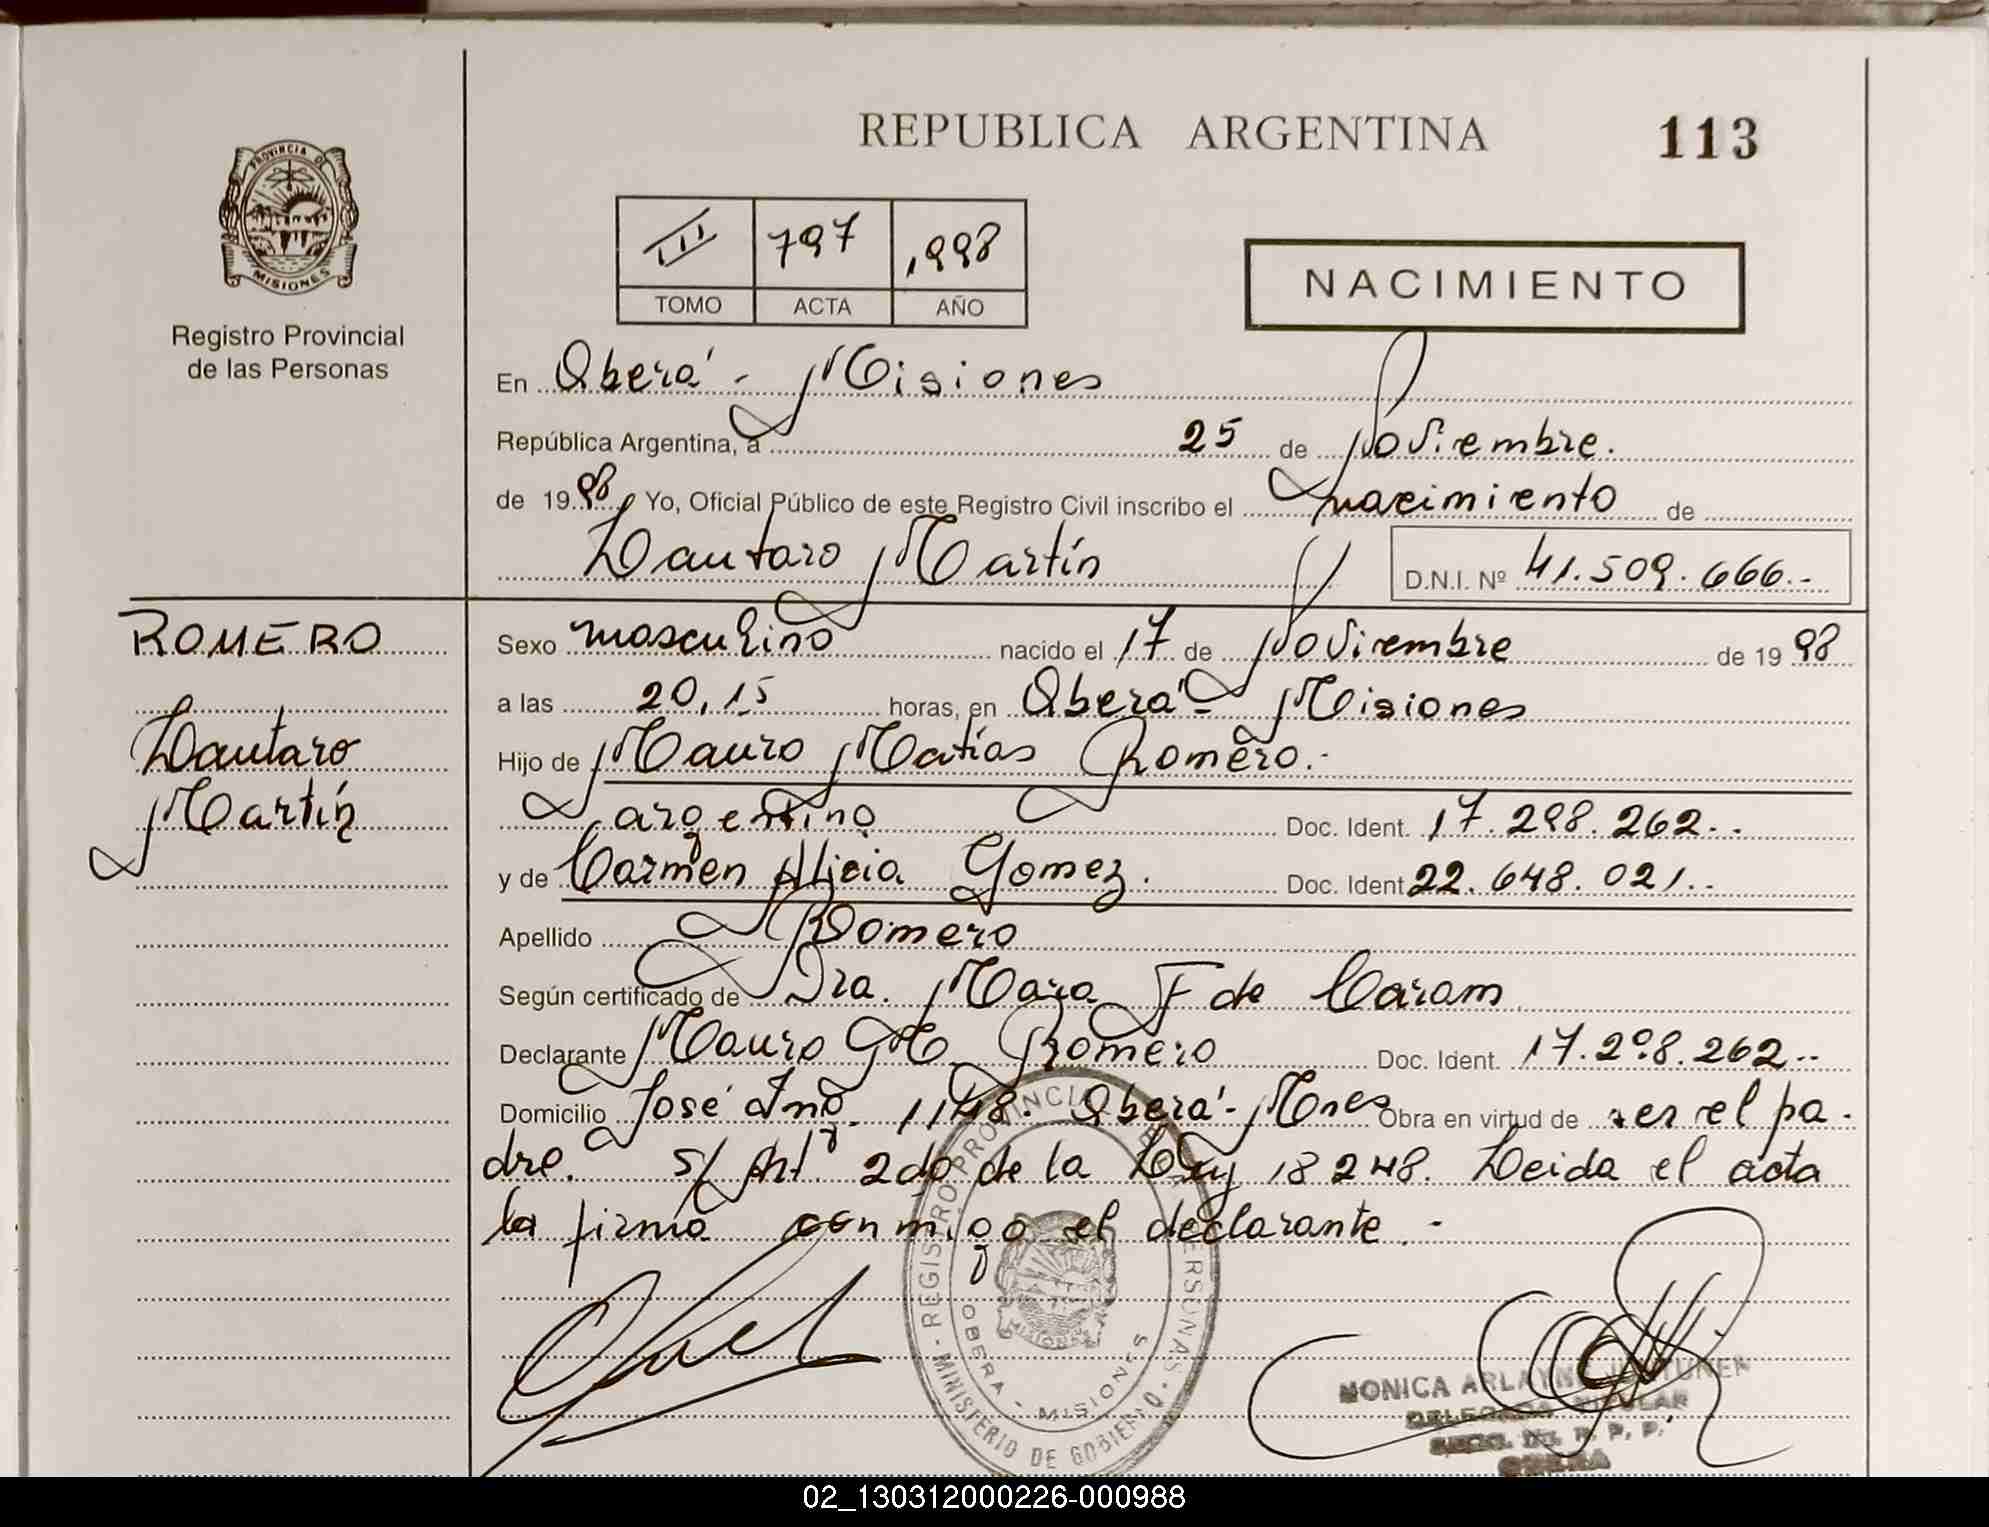 REPUBLICA ARGENTINA 113
PROVINCIA D MISIONES
Registro Provincial
de las Personas
III 797 1998
TOMO ACTA AÑO
NACIMIENTO
En Oberá - Misiones
República Argentina, a 25 de Noviembre.
de 19 98 Yo, Oficial Público de este Registro Civil inscribo el nacimiento de
Lautaro Martín D.N.I. Nº 41.509.666.-
ROMERO
Lautaro
Martín
Sexo masculino nacido el 17 de Noviembre de 19 98
a las 20,15 horas, en Oberá - Misiones
Hijo de Mauro Matías Romero.-
argentino Doc. Ident. 17.298.262.-
y de Carmen Alicia Gomez. Doc. Ident 22.648.021.-
Apellido Romero
Según certificado de Dra. Mara F de Caram
Declarante Mauro M. Romero Doc. Ident. 17.298.262.-
Domicilio José 1148. Oberá - Mnes Obra en virtud de ser el pa-
dre. s/ Art. 2do de la Ley 18248. Leida el acta
la firma conmigo el declarante.-
REGISTRO PROVINCIAL PERSONAS - MINISTERIO DE GOBIERNO
OBERA - MISIONES
MONICA ARLAYNE
DELEGADA TITULAR
R. P. P.
OBERA
02_130312000226-000988